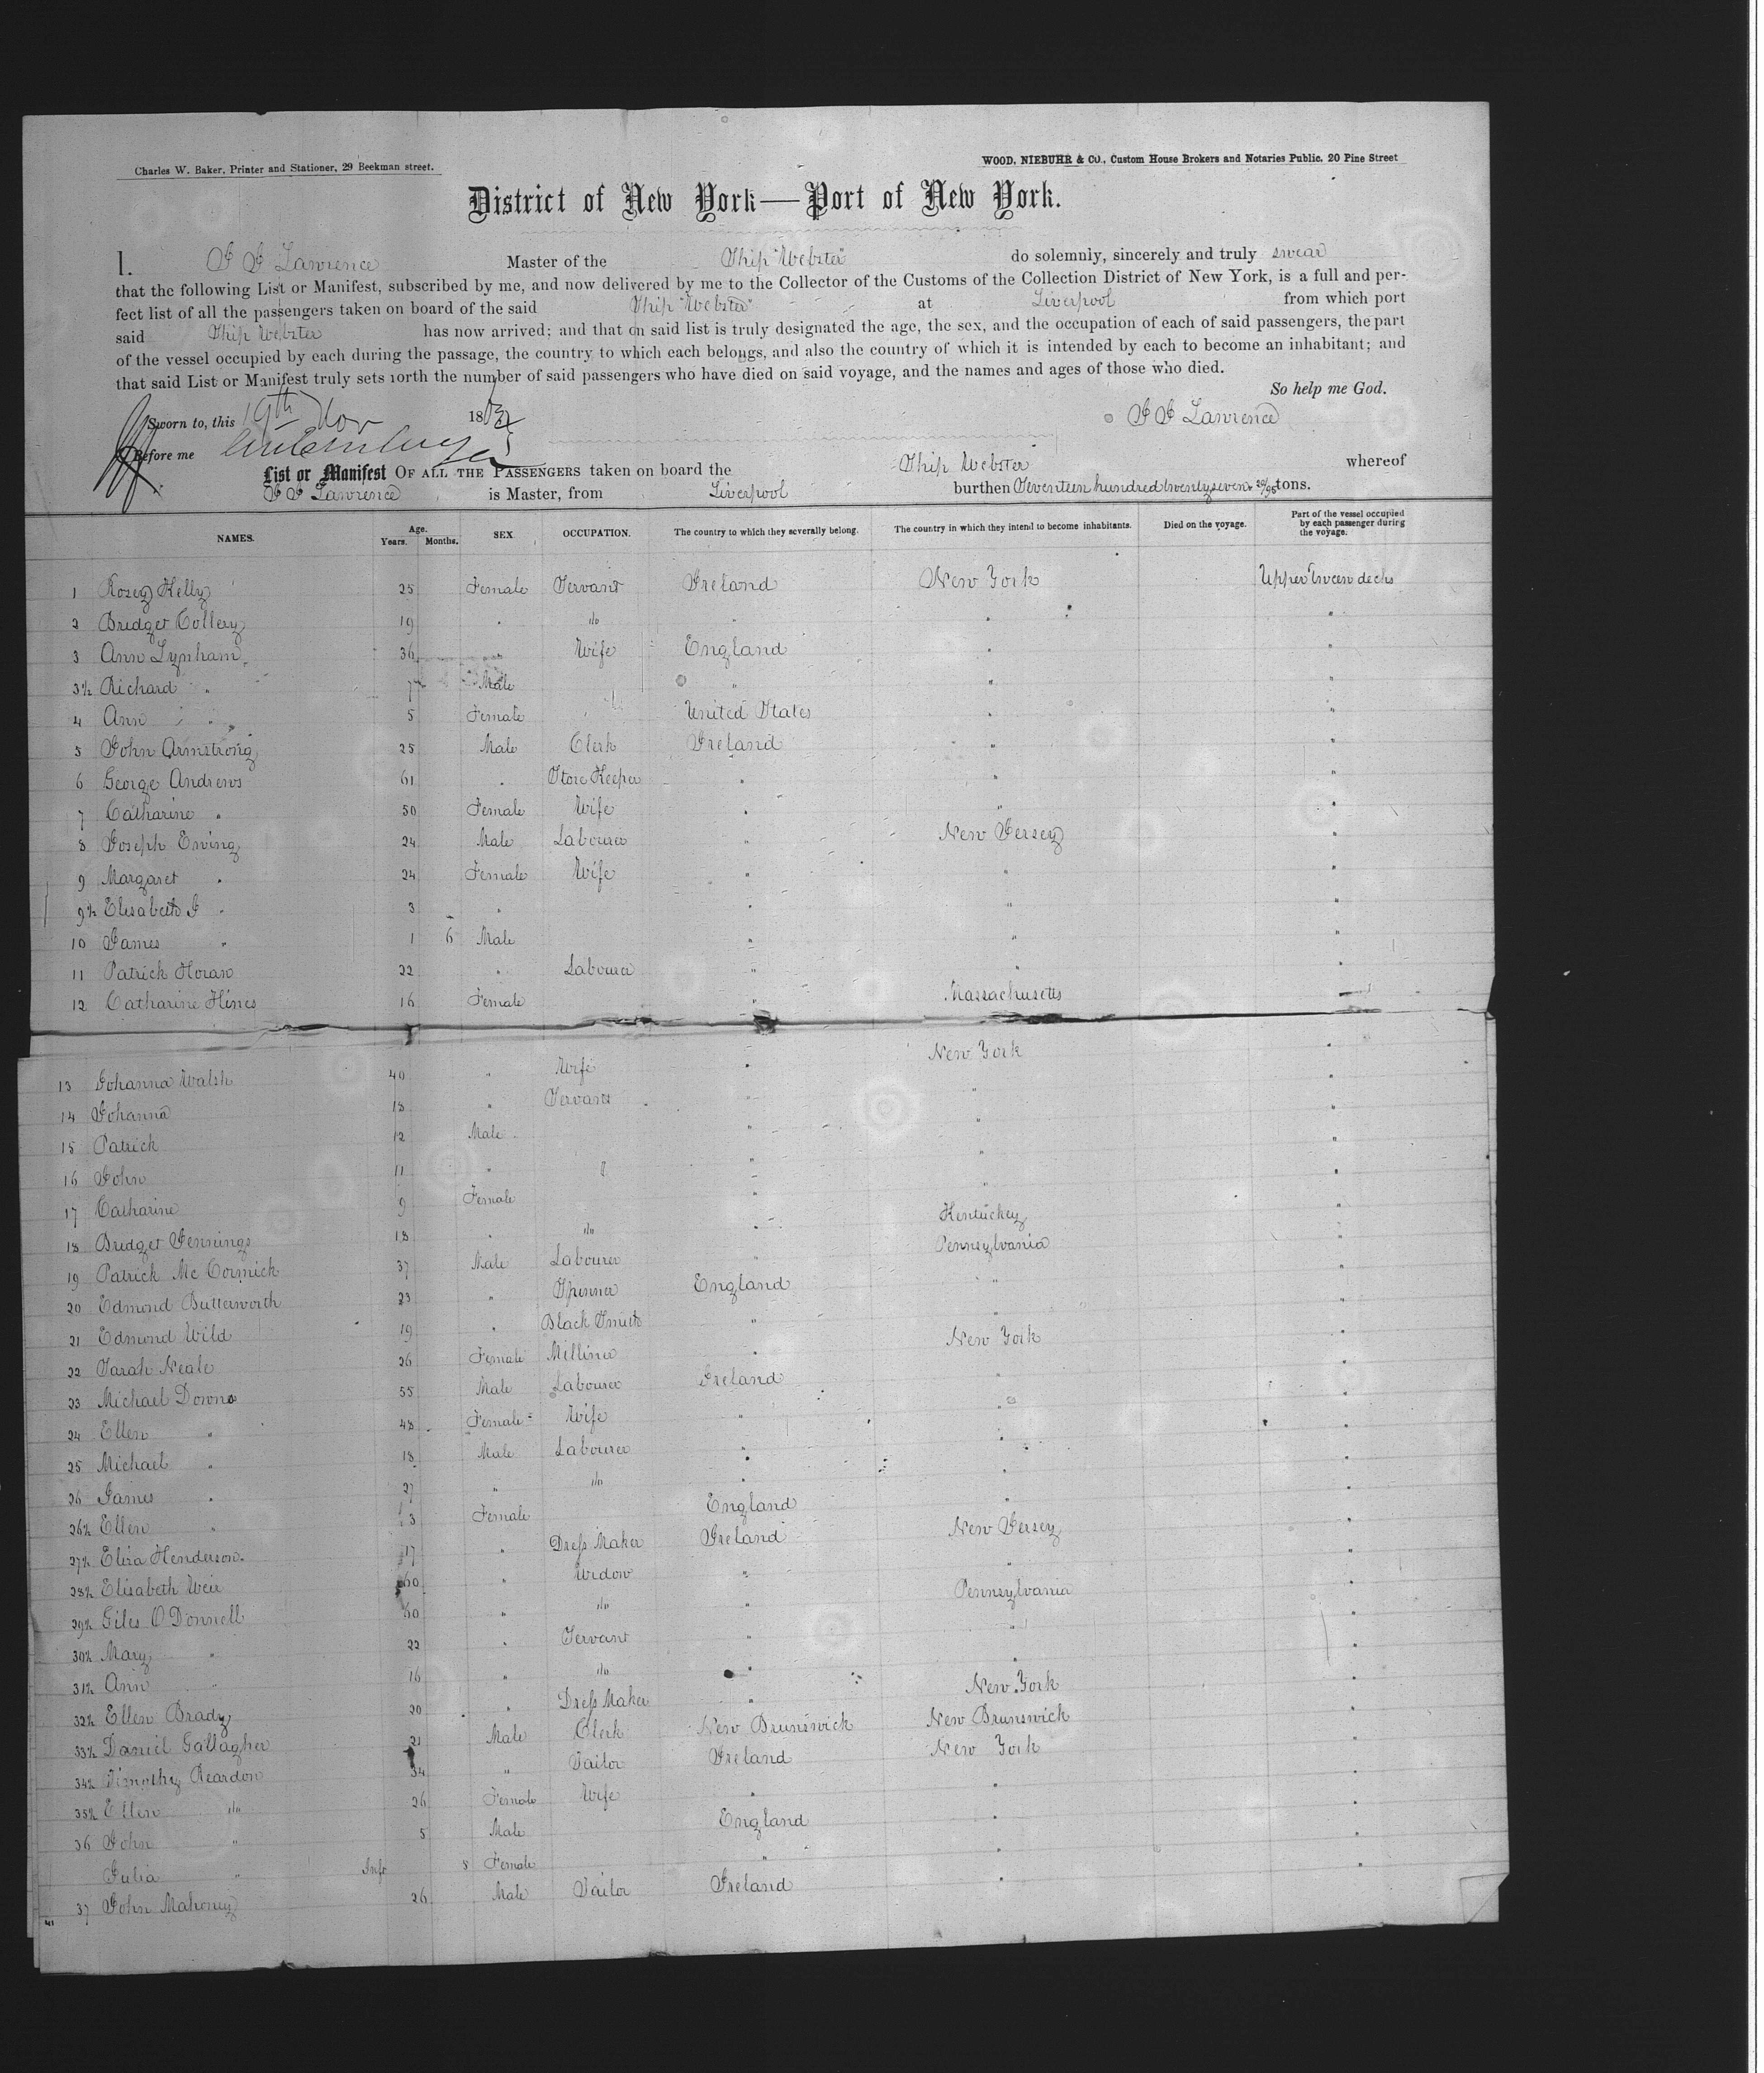 Charles W. Baker, Printer and Stationer, 29 Beekman street.
WOOD, NIEBUHR & CO., Custom House Brokers and Notaries Public, 20 Pine Street
District of New York—Port of New York.
I. J J Lawrence Master of the Ship "Webster" do solemnly, sincerely and truly swear
that the following List or Manifest, subscribed by me, and now delivered by me to the Collector of the Customs of the Collection District of New York, is a full and per-
fect list of all the passengers taken on board of the said Ship "Webster" at Liverpool from which port
said Ship Webster has now arrived; and that on said list is truly designated the age, the sex, and the occupation of each of said passengers, the part
of the vessel occupied by each during the passage, the country to which each belongs, and also the country of which it is intended by each to become an inhabitant; and
that said List or Manifest truly sets forth the number of said passengers who have died on said voyage, and the names and ages of those who died.
So help me God.
Sworn to, this 19th Nov 18
J J Lawrence
Before me
List or Manifest OF ALL THE PASSENGERS taken on board the Ship Webster whereof
J J Lawrence is Master, from Liverpool burthen Seventeen hundred twenty seven 20/95 tons.
NAMES. Age. Years. Months. SEX. OCCUPATION. The country to which they severally belong. The country in which they intend to become inhabitants. Died on the voyage. Part of the vessel occupied by each passenger during the voyage.
1 Rosey Kelly 25 Female Servant Ireland New York Upper Tween decks
2 Bridget Collery 19 " do " " "
3 Ann Lynham 36 " Wife England " "
3½ Richard " 7 Male " " "
4 Ann " 5 Female United States " "
5 John Armstrong 25 Male Clerk Ireland " "
6 George Andrews 61 " Store Keeper " " "
7 Catharine " 50 Female Wife " " "
8 Joseph Ewing 24 Male Labourer " New Jersey "
9 Margaret " 24 Female Wife " " "
9½ Elisabeth J " 3 " " " "
10 James " 1 6 Male " " "
11 Patrick Horan 22 " Labourer " " "
12 Catharine Hines 16 Female " Massachusetts
13 Johanna Walsh 40 " Wife " New York "
14 Johanna 18 " Servant " " "
15 Patrick 12 Male " " "
16 John 11 " " " "
17 Catharine 9 Female " " "
18 Bridget Jennings 18 " do " Kentuckey "
19 Patrick Mc Cormick 37 Male Labourer " Pennsylvania "
20 Edmond Butterworth 23 " Spinner England " "
21 Edmond Wild 19 " Black Smith " " "
22 Sarah Neale 26 Female Milliner " New York "
23 Michael Downs 55 Male Labourer Ireland " "
24 Ellen " 48 Female Wife " " "
25 Michael " 18 Male Labourer " " "
26 James " 27 " do " " "
26½ Ellen " 3 Female England " "
27½ Eliza Henderson 17 " Dress Maker Ireland New Jersey "
28½ Elisabeth Weir 60 " Widow " " "
29½ Giles O'Donnell 50 " do " Pennsylvania "
30½ Mary " 22 " Servant " " "
31½ Ann " 16 " do " " "
32½ Ellen Brady 20 " Dress Maker " New York "
33½ Daniel Gallagher 21 Male Clerk New Brunswick New Brunswick "
34½ Timothy Reardon 34 " Tailor Ireland New York "
35½ Ellen do 26 Female Wife " " "
36 John " 5 Male England " "
Julia " Inft 8 Female " " "
37 John Mahoney 26 Male Tailor Ireland " "